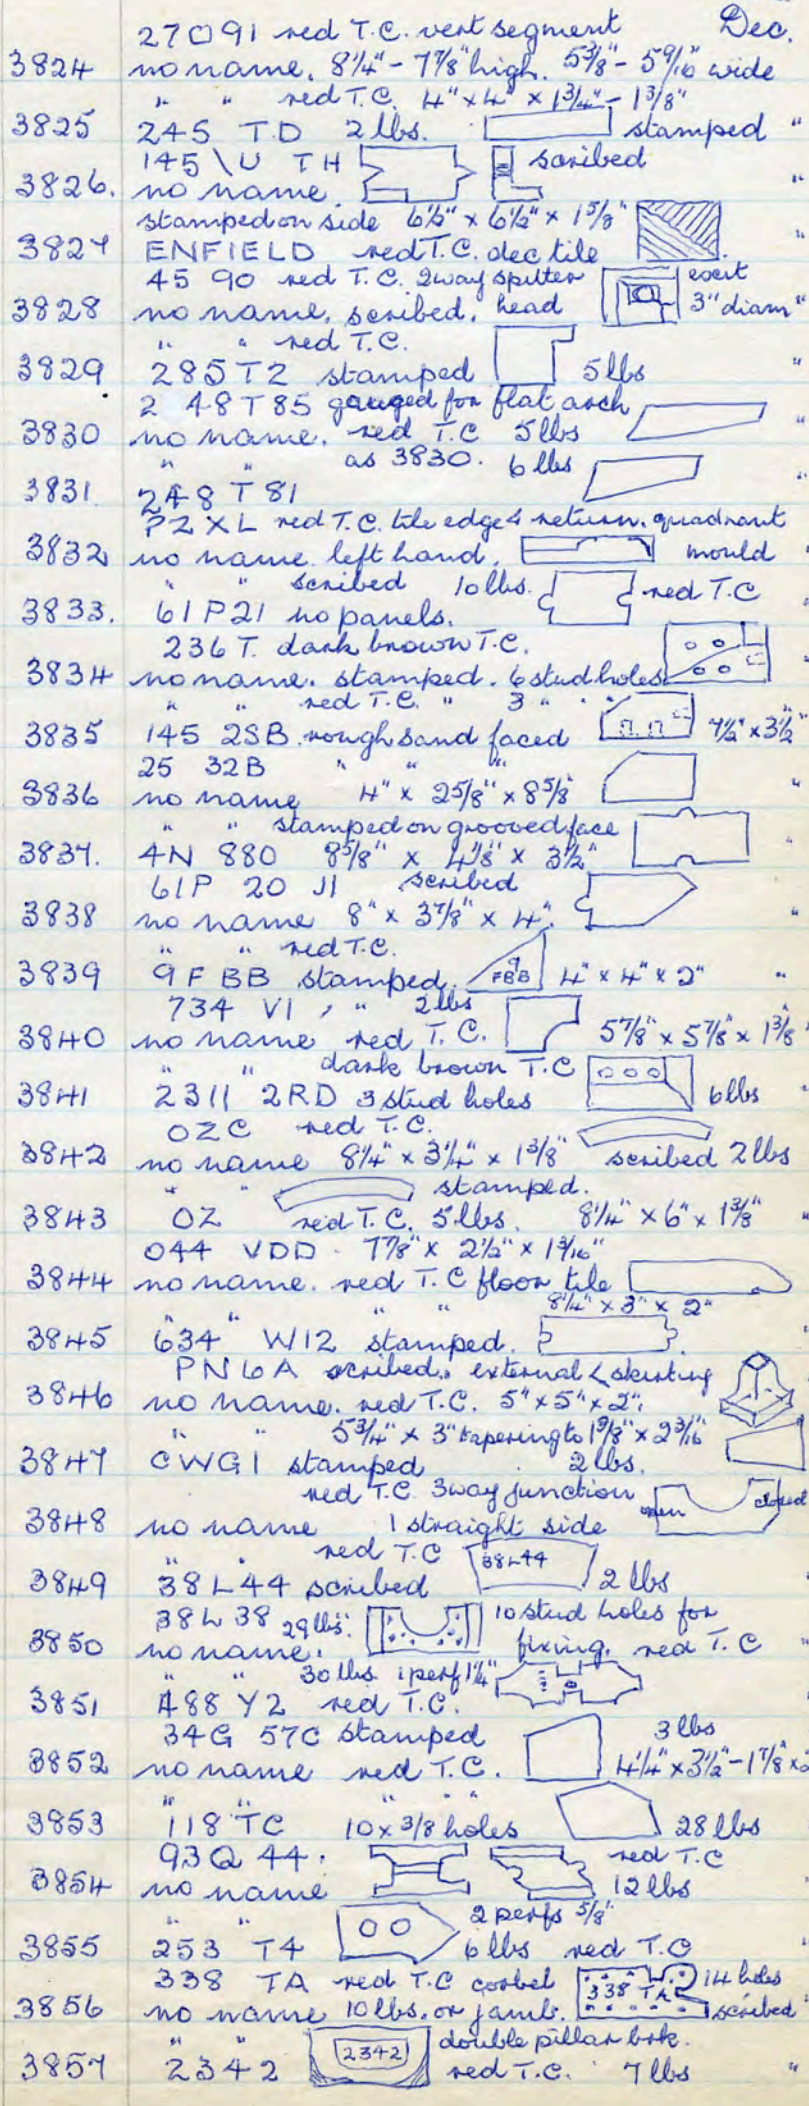 27091 red T.C. vent segment Dec.
3824 no name. 8¼" - 7⅞" high. 5⅜" - 5 9/16" wide
" " red T.C. 4" x 4" x 1¾" - 1⅜"
3825 245 TD 2 lbs. stamped "
145 \U TH scribed
3826. no name. "
stamped on side 6½" x 6½" x 1⅝"
3827 ENFIELD red T.C. dec tile "
45 90 red T.C. 2way spitter exit
3828 no name. scribed. head 3" diam "
" " red T.C.
3829 285T2 stamped 5 lbs "
2 48T85 gauged for flat arch
3830 no name. red T.C 5 lbs "
" " as 3830. 6 lbs
3831 248 T81 "
PZXL red T.C. tile edge & return. quadrant
3832 no name left hand. mould "
" " scribed 10 lbs. red T.C
3833. 61P21 no panels.
236T. dark brown T.C.
3834 no name. stamped. 6 stud holes "
" " red T.C. " 3 " "
3835 145 2SB. rough sand faced 7½" x 3½"
25 32B " " "
3836 no name 4" x 2⅝" x 8⅝" "
" " stamped on grooved face
3837. 4N 880 8⅝" x 4⅛" x 3½" "
61P 20 J1 scribed
3838 no name 8" x 3⅞" x 4". "
" " red T.C.
3839 9FBB stamped. 9 FBB 4" x 4" x 2" "
734 VI, " 2 lbs
3840 no name red T.C. 5⅞" x 5⅞" x 1⅜"
" " dark brown T.C
3841 2311 2RD 3 stud holes 6 lbs "
OZC red T.C.
3842 no name 8¼" x 3¼" x 1⅜" scribed 2 lbs
" " stamped.
3843 OZ red T.C. 5 lbs. 8¼" x 6" x 1⅜" "
044 VDD. 7⅞" x 2½" x 1 3/16"
3844 no name. red T.C floor tile
" " " " 8¼" x 3" x 2"
3845 634 W12 stamped. "
PN6A scribed. external < skirting
3846 no name. red T.C. 5" x 5" x 2". "
" " 5¾" x 3" tapering to 1⅜" x 2 3/16"
3847 CWG1 stamped 2 lbs. "
red T.C. 3way junction
3848 no name 1 straight side open closed
" " red T.C 38L44
3849 38L44 scribed 2 lbs "
38L 38 29 lbs. 10 stud holes for
3850 no name. fixing. red T.C "
" " 30 lbs 1 perf 1¼"
3851 A88 Y2 red T.C.
34G 57C stamped 3 lbs
3852 no name red T.C. 4¼" x 3½" - 1⅞" x 2
" " " "
3853 118 TC 10 x 3/8 holes 28 lbs
93Q 44. red T.C
3854 no name 12 lbs "
" " 2 perfs ⅝"
3855 253 T4 6 lbs red T.C "
338 TA red T.C corbel 338 TA 14 holes
3856 no name 10 lbs. or jamb. scribed "
" " double pillar brk.
3857 2342 2342 red T.C. 7 lbs "